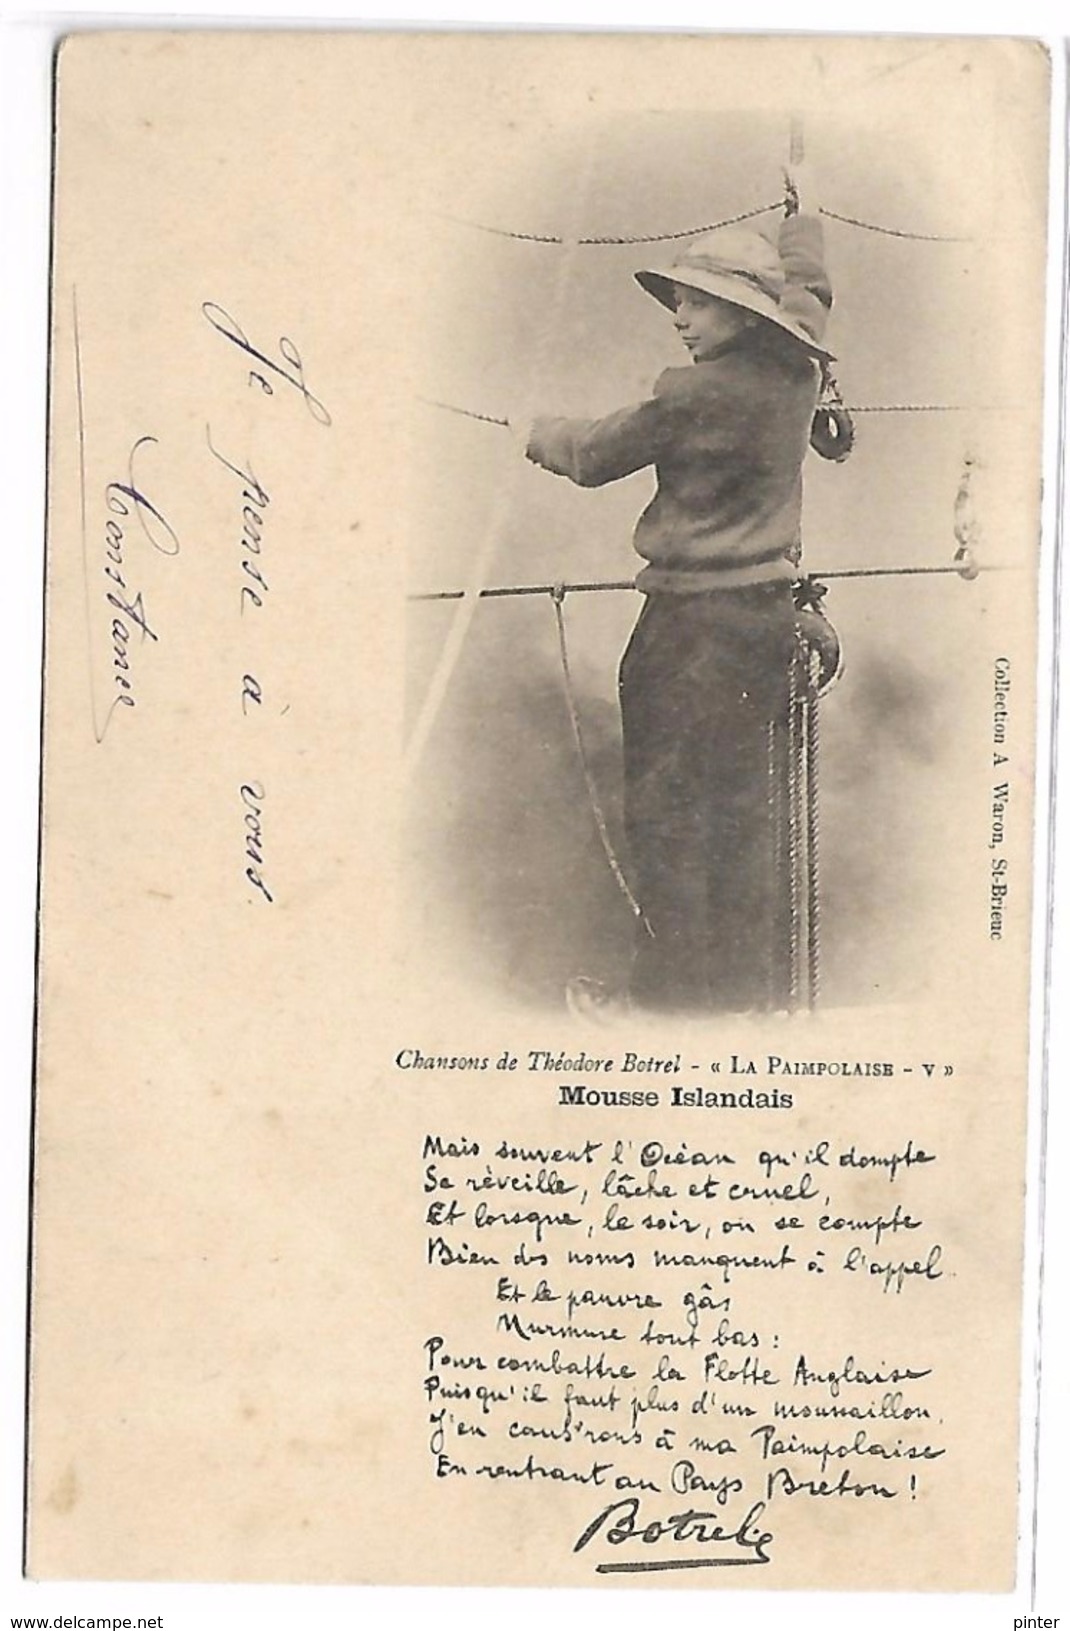 Je pense à vous.
Constance
Collection A Waron, St-Brieuc
Chansons de Théodore Botrel - « LA PAIMPOLAISE - V »
Mousse Islandais
Mais souvent l'Océan qu'il dompte
Se réveille, lâche et cruel,
Et lorsque, le soir, on se compte
Bien des noms manquent à l'appel..
Et le pauvre gâs
Murmure tout bas :
Pour combattre la Flotte Anglaise
Puisqu'il faut plus d'un moussaillon,
J'en caus'rons à ma Paimpolaise
En rentrant au Pays Breton !
Botrel
www.delcampe.net
pinter